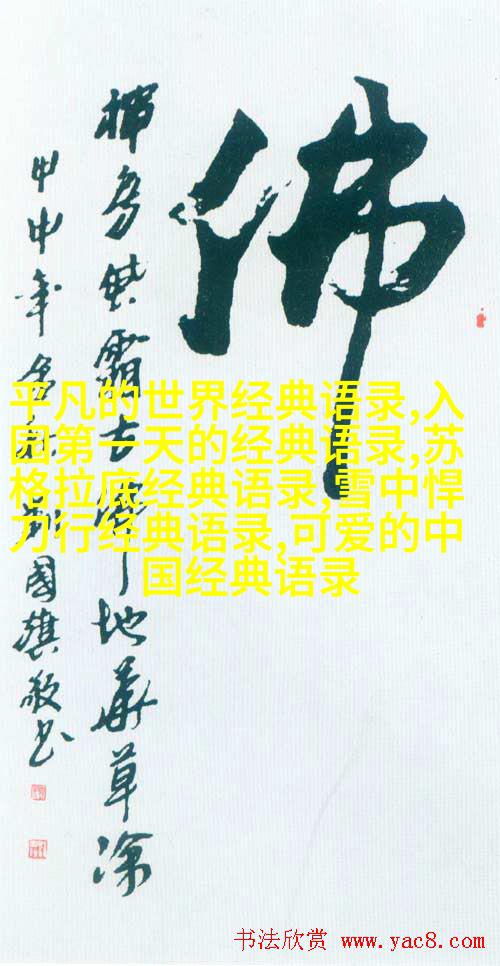 佛
霜古地草
甲申年國旗敬书
平凡的世界经典语录,入
园第一天的经典语录,苏
格拉底经典语录,雪中悍
刀行经典语录,可爱的中
国经典语录
书法欣赏 www.yac8.com